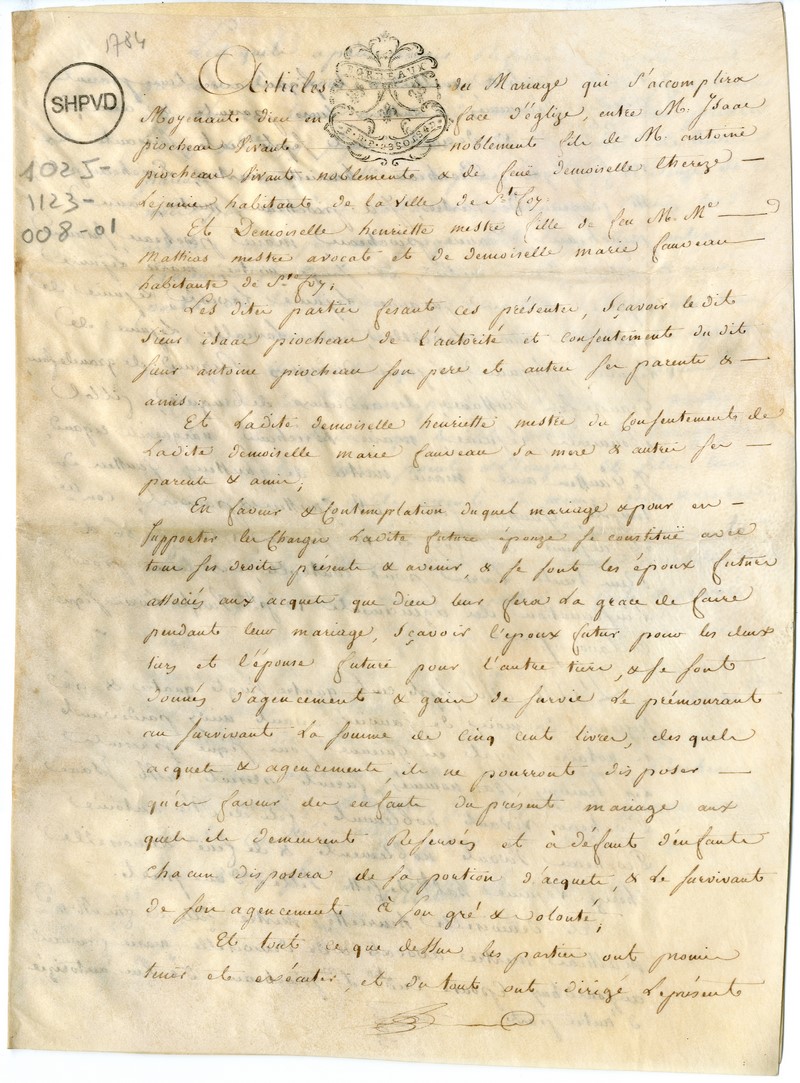 1784
SHPVD
1025-
1123-
008-01
BORDEAUX
Articles du Mariage qui s'accomplira
Moyenant dieu en face d'église, entre M. Isaac
piocheau vivant noblement fils de M. antoine
piocheau vivant noblement & de feüe demoiselle thereze —
Lejunie habitants de la ville de Ste foy.
Et Demoiselle henriette mestre fille de feu M. Me —
Mathias mestre avocat et de demoiselle marie fauveau —
habitante de Ste foy;
Les dites parties fesant ces présentes, sçavoir le dit
sieur isaac piocheau de l'autorité et consentement du dit
sieur antoine piocheau son pere et autres ses parents & —
amis:
Et Ladite demoiselle henriette mestre du Consentement de
Ladite demoiselle marie fauveau sa mere & autres ses —
parents & amis;
En faveur & Contemplation duquel mariage & pour en —
supporter les Charges Ladite future épouze se constituë avec
tous ses droits présents & avenir, & se sont les époux futurs
associés aux acquets que dieu leur fera La grace de faire
pendant leur mariage, sçavoir l'époux futur pour les deux
tiers et l'épouse future pour l'autre tiers, & se sont
donnés d'agencement & gain de survie Le prémourant
au survivant La somme de cinq cents livres, desquels
acquets & agencements, ils ne pourront disposer —
qu'en faveur des enfants du présent mariage aux
quels ils demeurent Reservés et à défaut d'enfants
Chacun disposera de sa portion d'acquets, & Le survivant
de son agencement à son gré & volonté;
Et tout ce que dessus les parties ont promis
tenir et exécuter, et du tout ont dirigé Leprésent